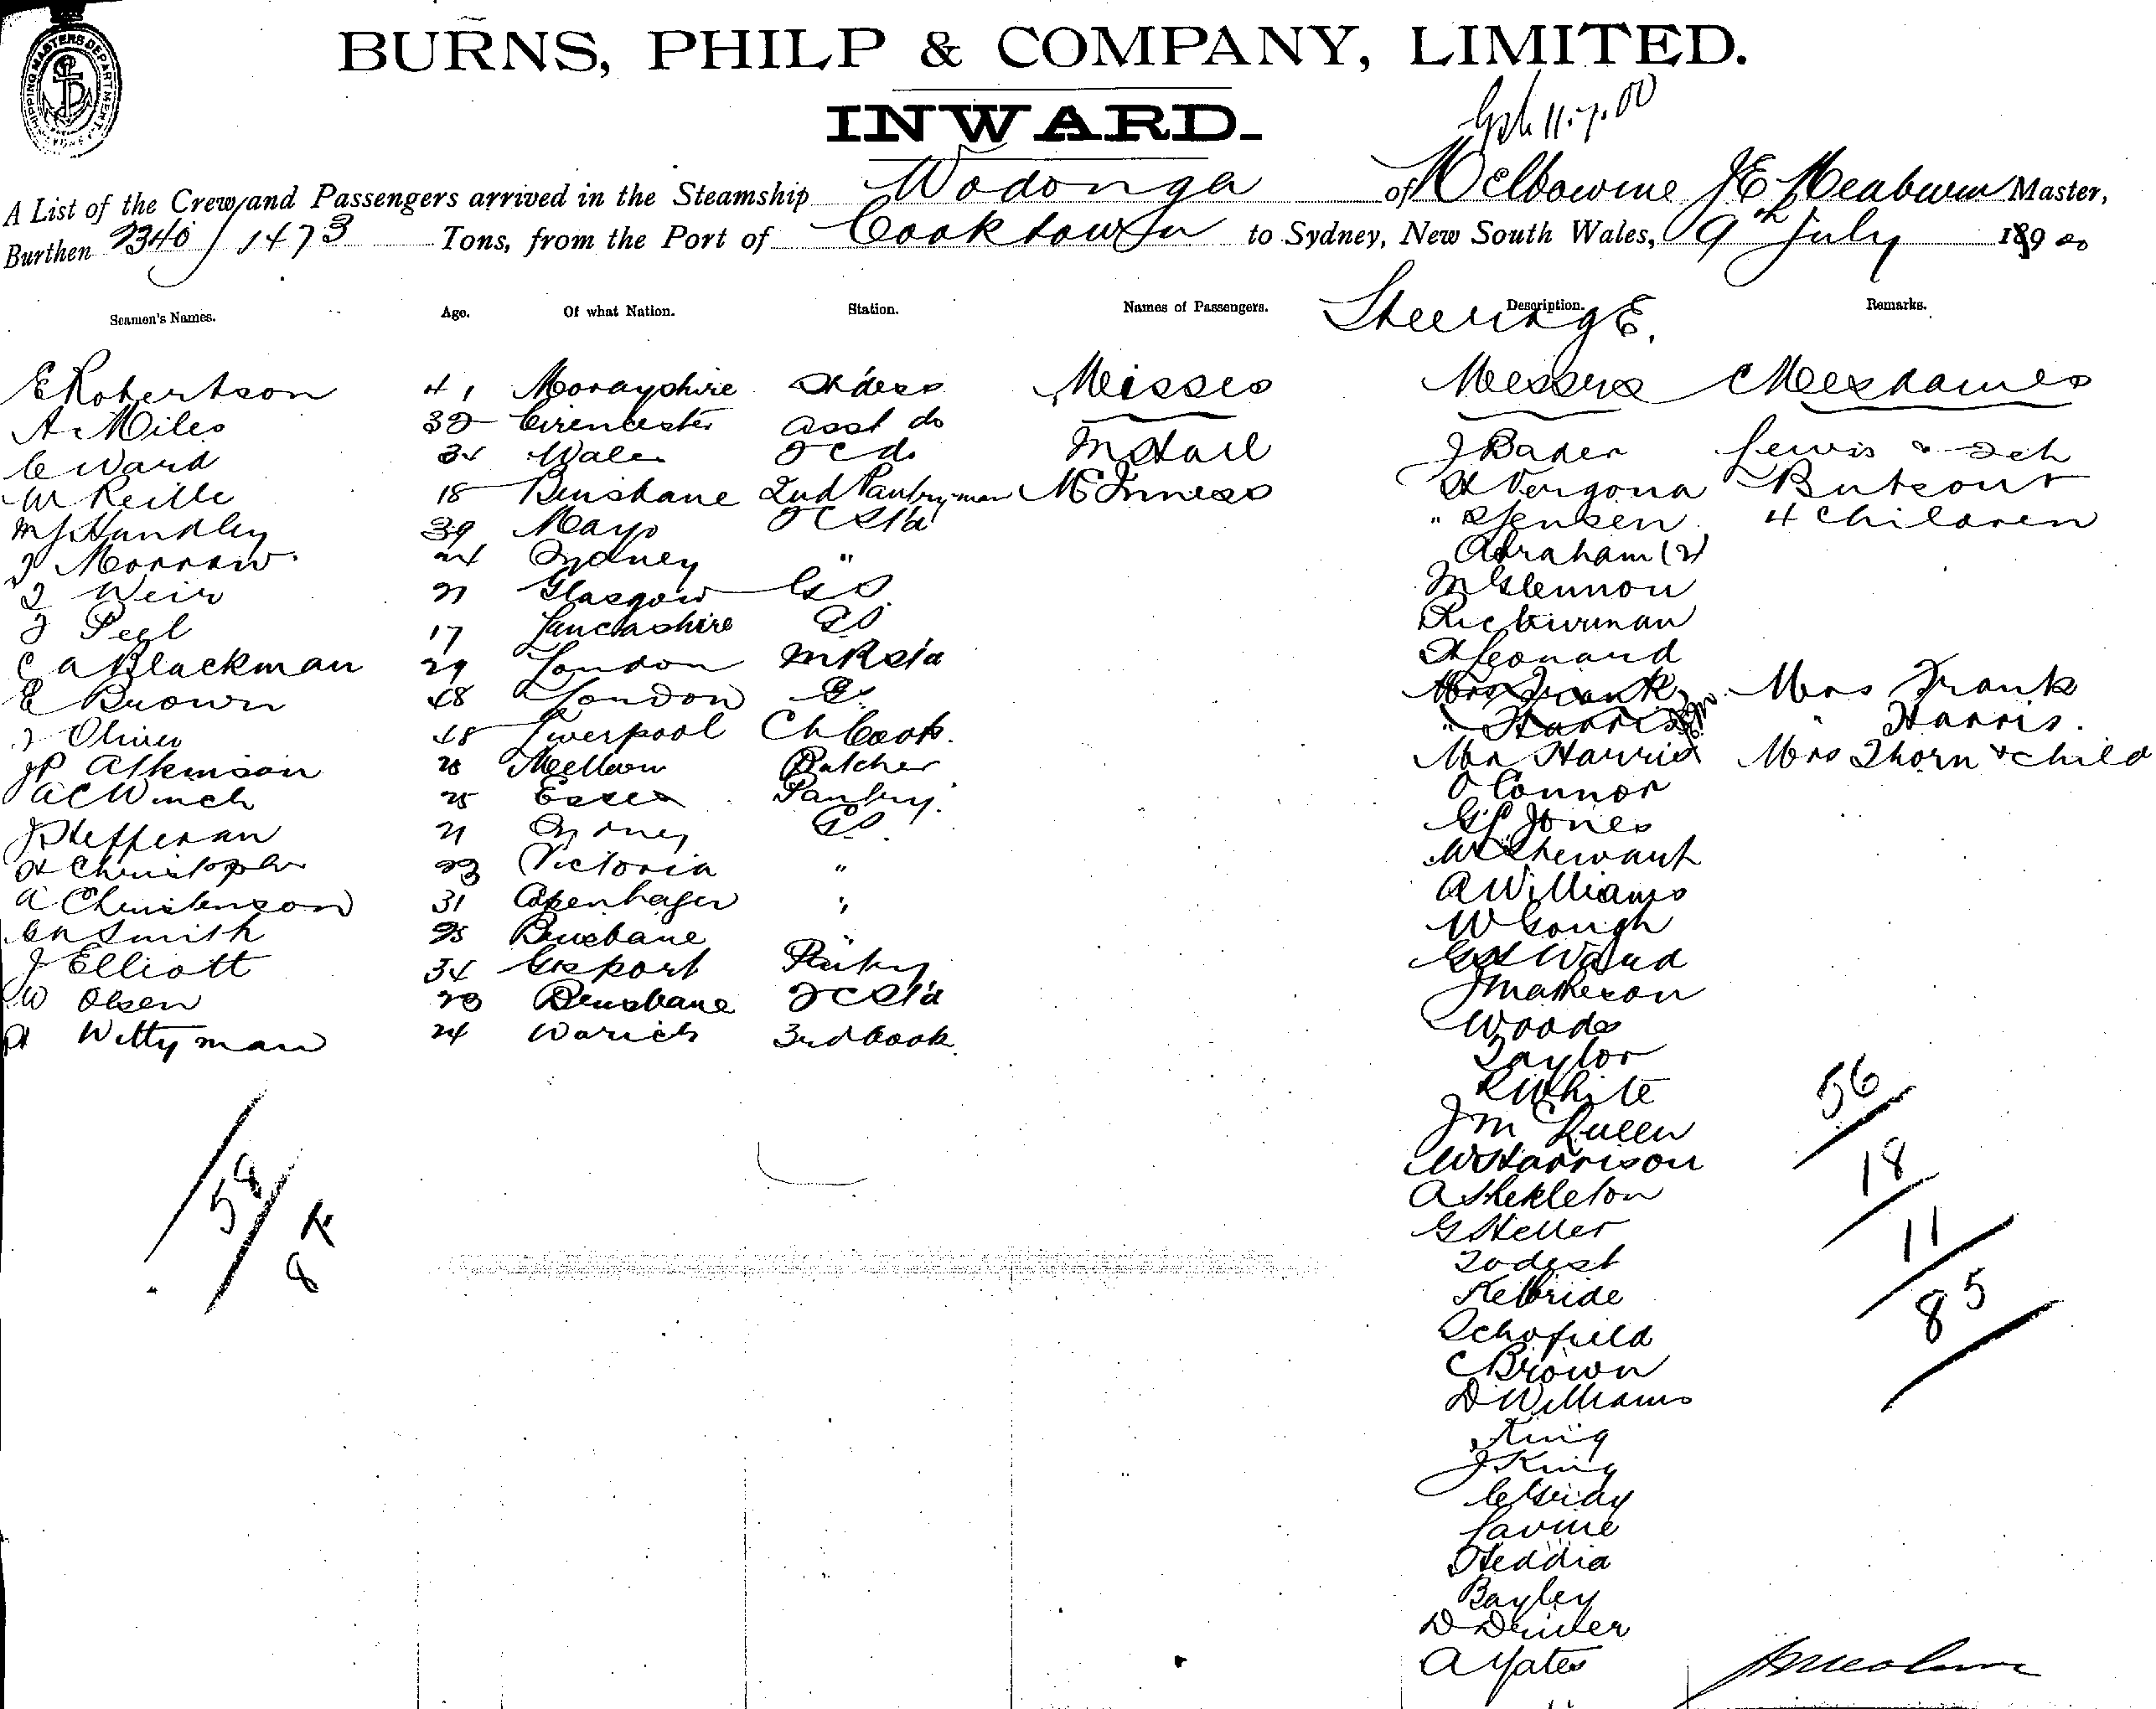 SHIPPING MASTERS DEPARTMENT
BURNS, PHILP & COMPANY, LIMITED.
INWARD.
11.7.00
A List of the Crew and Passengers arrived in the Steamship Wodonga of Melbourne J E Meaburn Master,
Burthen 2340 / 1473 Tons, from the Port of Cooktown to Sydney, New South Wales, 9th July 1900
Seamen's Names. Age. Of what Nation. Station. Names of Passengers. Description. Remarks.
Steerage.
E Robertson 41 Morayshire Misses Messrs Mesdames
A Miles 32 Cirencester asst do
C Ward Wales J Bader Lewis
W Reille 18 Brisbane 2nd Pantryman McInness H Vergona
M J Handley 39 Mayo " Jensen 4 children
J Morrow 24 Sydney " Abraham (2)
J Weir 21 Glasgow GS McGlennon
J Pegl 17 Lancashire GS
C A Blackman 29 London H Leonard
E Brown 48 London Mrs Frank Mrs Frank
J Oliver 48 Liverpool Ch Cook. " Harris " Harris.
J P Atkinson Butcher Mr Harris Mrs Thorn & child
A C Winch 25 Essex Pantry. O'Connor
J Hefferan 21 Sydney GS. G P Jones
H Christopher 23 Victoria " W Stewart
A Christenson 31 Copenhagen " A Williams
Smith 25 Brisbane " W Gough
J Elliott 34 Gosport Pantry G H Ward
W Olsen Brisbane J Matheson
H Wittyman 24 Warich 3rd Cook. Woods
Taylor
R White
J McQueen
W Harrison
A Shekleton
G Heller
Todest
Kelbride
Schofield
C Brown
D Williams
King
J King
C Gray
Lavine
Heddia
Bayley
D Driver
A Yates
58
8 F
56
18
11
85